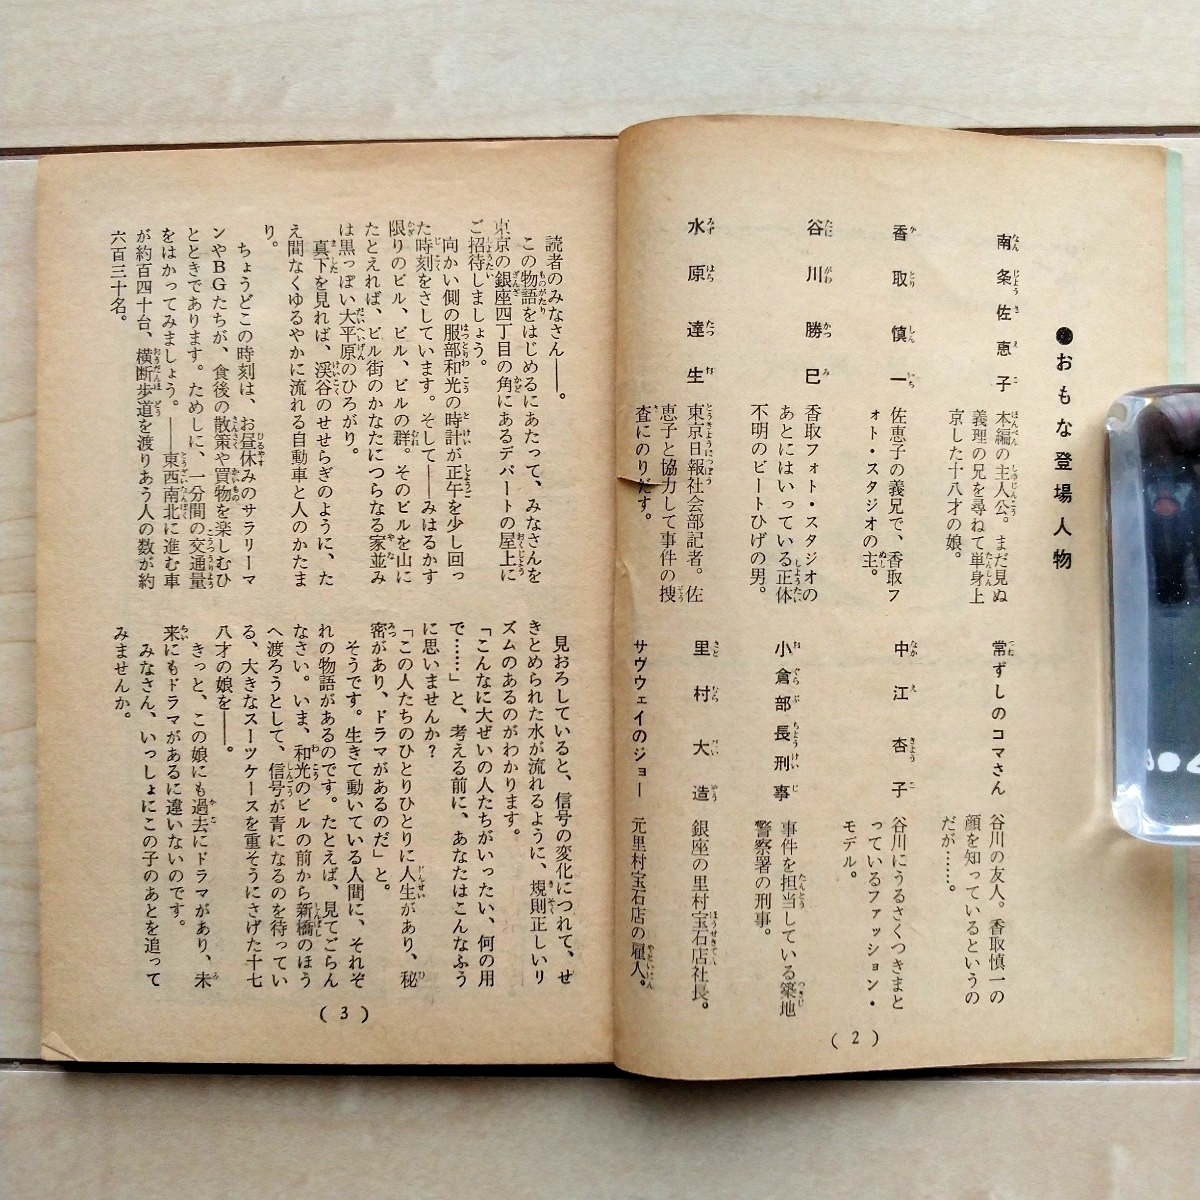 ●おもな登場人物
南条佐恵子
本編の主人公。まだ見ぬ
義理の兄を尋ねて単身上
京した十八才の娘。
香取慎一
佐恵子の義兄で、香取フ
ォト・スタジオの主。
谷川勝巳
香取フォト・スタジオの
あとにはいっている正体
不明のビートひげの男。
水原達生
東京日報社会部記者。佐
恵子と協力して事件の捜
査にのりだす。
常ずしのコマさん
谷川の友人。香取慎一の
顔を知っているというの
だが……。
中江杏子
谷川にうるさくつきまと
っているファッション・
モデル。
小倉部長刑事
事件を担当している築地
警察署の刑事。
里村大造
銀座の里村宝石店社長。
サヴウェイのジョー
元里村宝石店の雇人。
(2)
読者のみなさん――。
この物語をはじめるにあたって、みなさんを
東京の銀座四丁目の角にあるデパートの屋上に
ご招待しましょう。
向かい側の服部和光の時計が正午を少し回っ
た時刻をさしています。そして――みはるかす
限りのビル、ビル、ビルの群。そのビルを山に
たとえれば、ビル街のかなたにつらなる家並み
は黒っぽい大平原のひろがり。
真下を見れば、渓谷のせせらぎのように、た
え間なくゆるやかに流れる自動車と人のかたま
り。
ちょうどこの時刻は、お昼休みのサラリーマ
ンやＢＧたちが、食後の散策や買物を楽しむひ
とときであります。ためしに、一分間の交通量
をはかってみましょう。――東西南北に進む車
が約百四十台、横断歩道を渡りあう人の数が約
六百三十名。
見おろしていると、信号の変化につれて、せ
きとめられた水が流れるように、規則正しいリ
ズムのあるのがわかります。
「こんなに大ぜいの人たちがいったい、何の用
で……」と、考える前に、あなたはこんなふう
に思いませんか？
「この人たちのひとりひとりに人生があり、秘
密があり、ドラマがあるのだ」と。
そうです。生きて動いている人間に、それぞ
れの物語があるのです。たとえば、見てごらん
なさい。いま、和光のビルの前から新橋のほう
へ渡ろうとして、信号が青になるのを待ってい
る、大きなスーツケースを重そうにさげた十七
八才の娘を――。
きっと、この娘にも過去にドラマがあり、未
来にもドラマがあるに違いないのです。
みなさん、いっしょにこの子のあとを追って
みませんか。
(3)